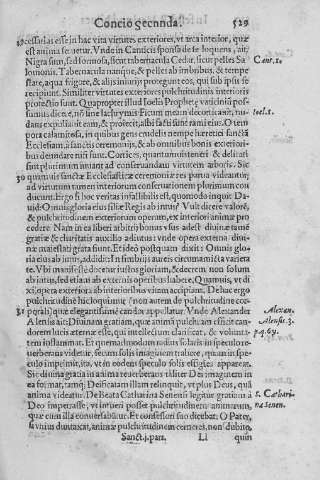 Concio secunda. 529
cessarias esse in hac vita virtutes exteriores, vt arca interior, quæ
est anima seruetur. Vnde in Canticis sponsa de se loquens, ait;
Nigra sum, sed formosa, sicut tabernacula Cedar, sicut pelles Sa-
lomonis. Tabernacula nanque, & pelles ab imbribus, & tempe
state, aqua frigore, & alijs iniurijs protegunt eos, qui sub ipsis se
recipiunt. Similiter virtutes exteriores pulchritudinis interioris
Cant. 1.
protectio sunt. Quapropter illud Ioelis Prophetæ vaticinia pos-
sumus dicere, nō sine lachrymis Ficum meam decorticauit, nu-
dans expoliauit eam, & proiecit, albi facti sunt rami eius. O tem
Ioel. 1.
pora calamitosa, in quibus gens crudelis nempe hæretici sanctā
Ecclesiam, à sanctis ceremonijs, & ab omnibus bonis exteriori-
bus denudare nisi sunt. Cortices, quantumuis tenues & delicati
sint plurimum iuuant ad conseruandum virtutem arboris. Sic
30 quamuis sanctæ Ecclesiasticæ ceremoniæ res parua videantur,
ad virtutum tamen interiorum conseruationem plurimum con
ducunt. Ergo si hoc veritas infallibilis est, quomodo inquit Da-
uid: Omnis gloria eius filiæ Regis ab intus? Vult dicere valorē,
& pulchritudinem exteriorum operum, ex interiori animæ pro
cedere. Nam in ea liberi arbitrij bonus vsus adest diuinæ tamē
gratiæ & charitatis auxilio adiutus: vnde opera externa diui-
næ maiestati grata fiunt. Et ideo postquam dixit: Omnis glo-
ria eius ab intus, addidit: In fimbrijs aureis circumamicta varieta
te. Vbi manifestè docetur iustos gloriam, & decorem non solum
ab intus, sed etiam ab externis operibus habere. Quamuis, vt di
xi, opera exteriora ab interioribus vitam accipiant. De hac ergo
pulchritudine hic loquimur (non autem de pulchritudine cor-
31 porali) quæ elegantissimè candor appellatur. Vnde Alexander
Alensis ait: Diuinam gratiam, quæ animā pulchram efficit can-
Alexan.
Alensis 3.
dorem lucis æternæ esse, qui intellectum clarificat, & volunta-
tem inflammat. Et quemadmodum radius solaris in speculo re-
uerberans videtur, secum solis imaginem trahere, quam in spe-
culo imprimit, ita, vt in eodem speculo solis effigies appareat.
Sic diuina gratia in anima reuerberans videtur Dei imaginem in
ea formare, tamq; Deificatam illam relinquit, vt plus Deus, quā
anima videatur. De Beata Catharina Senensi legitur gratiam à
Deo impetrasse, vt intueri posset pulchritudinem animarum,
S. Cathari-
na Senen.
quæ cum illa conuersabātur. Et confessori suo dicebat: O Pater,
si vnius duntaxat, animæ pulchritudinem cerneres, non dubito,
Sanct. j. pars. Ll quin